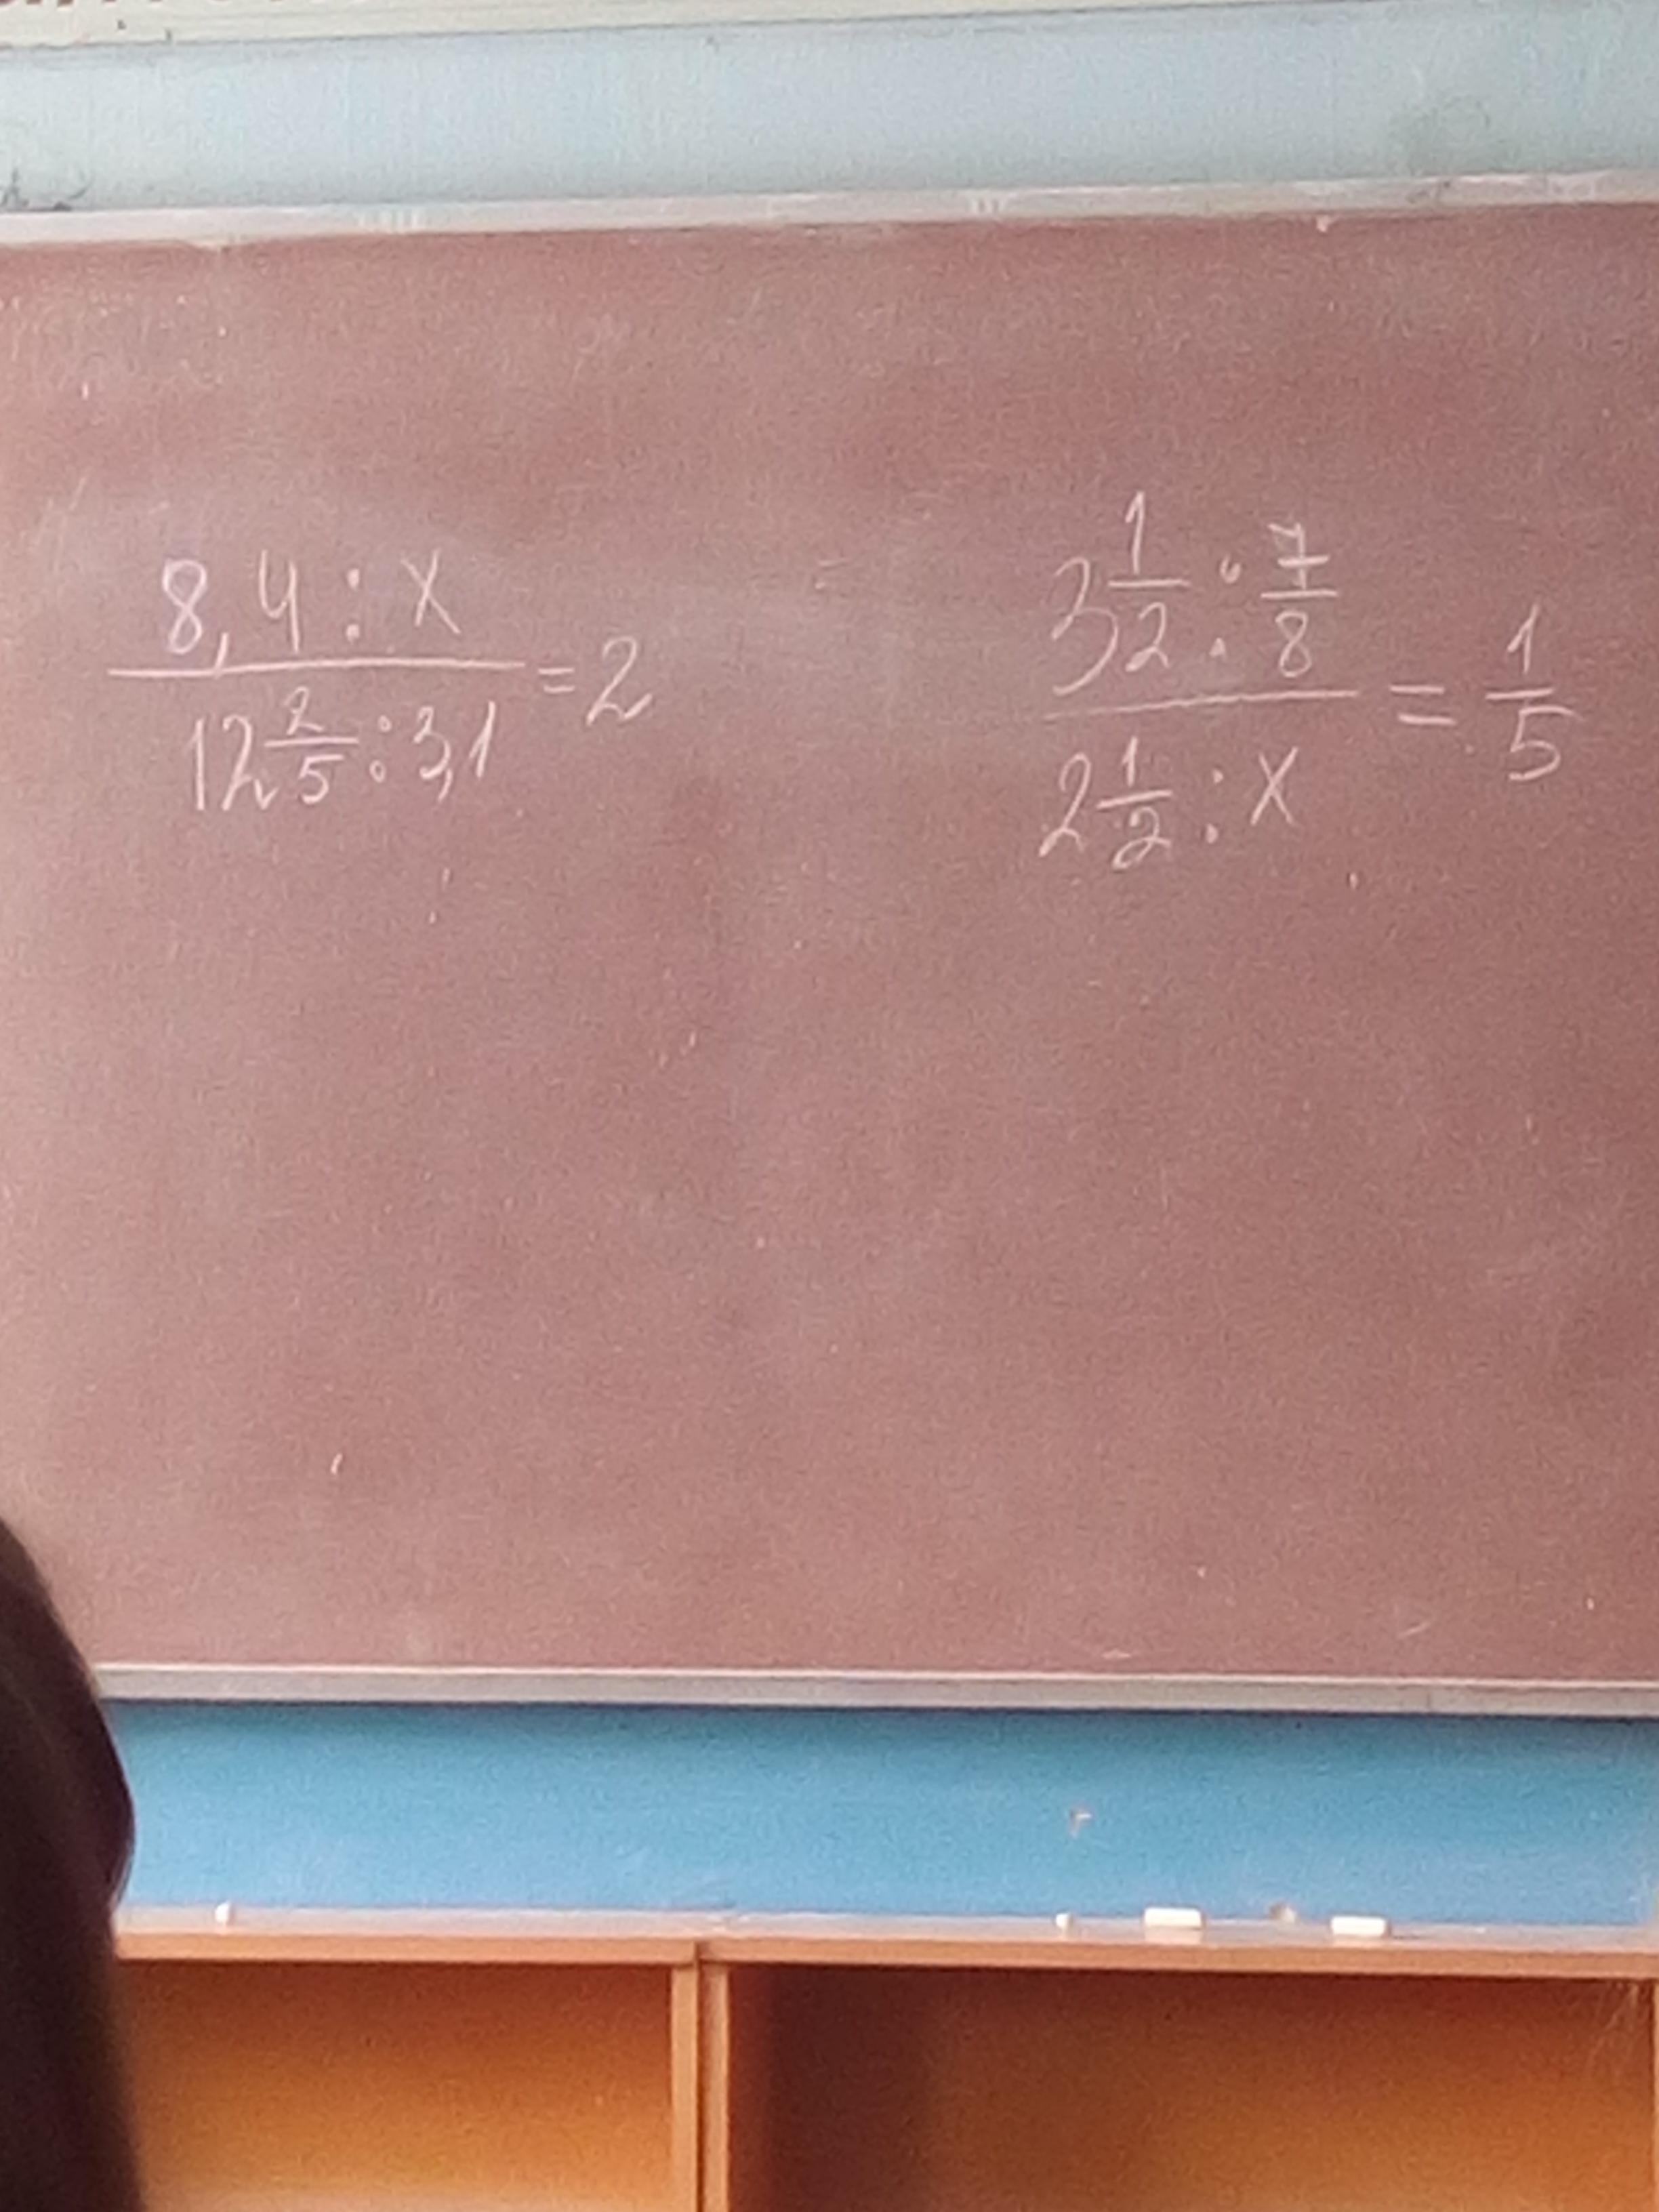 8,4 : x / 12 2/5 : 3,1 = 2
3 1/2 : 7/8 / 2 1/2 : x = 1/5